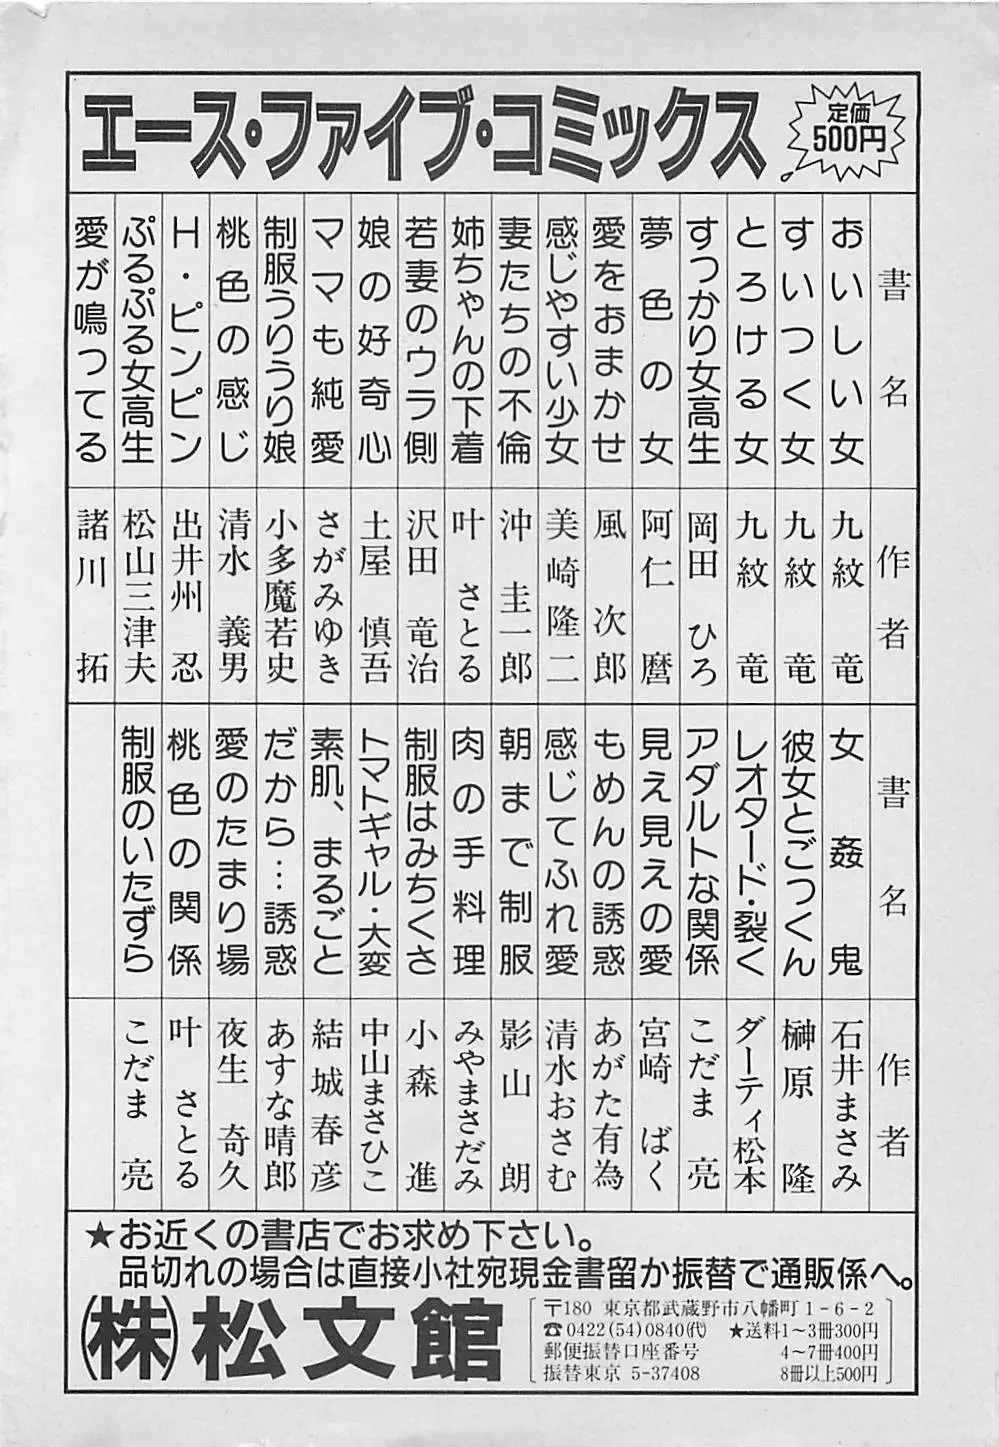 エース・ファイブ・コミックス
定価
500円
書名
おいしい女
すいつく女
とろける女
すっかり女高生
夢色の女
愛をおまかせ
感じやすい少女
妻たちの不倫
姉ちゃんの下着
若妻のウラ側
娘の好奇心
ママも純愛
制服うりうり娘
桃色の感じ
H・ピンピン
ぷるぷる女高生
愛が鳴ってる
作者
九紋竜
九紋竜
九紋竜
岡田ひろ
阿仁麿
風次郎
美崎隆二
沖圭一郎
叶さとる
沢田竜治
土屋慎吾
さがみゆき
小多魔若史
清水義男
出井州忍
松山三津夫
諸川拓
書名
女姦鬼
彼女とごっくん
レオタード・裂く
アダルトな関係
見え見えの愛
もめんの誘惑
感じてふれ愛
朝まで制服
肉の手料理
制服はみちくさ
トマトギャル・大変
素肌、まるごと
だから…誘惑
愛のたまり場
桃色の関係
制服のいたずら
作者
石井まさみ
榊原隆
ダーティ松本
こだま亮
宮崎ばく
あがた有為
清水おさむ
影山朗
みやまさだみ
小森進
中山まさひこ
結城春彦
あすな晴郎
夜生奇久
叶さとる
こだま亮
★お近くの書店でお求め下さい。
品切れの場合は直接小社宛現金書留か振替で通販係へ。
㈱松文館
〒180 東京都武蔵野市八幡町1-6-2
☎0422(54)0840(代) ★送料1〜3冊300円
郵便振替口座番号 4〜7冊400円
振替東京 5-37408 8冊以上500円